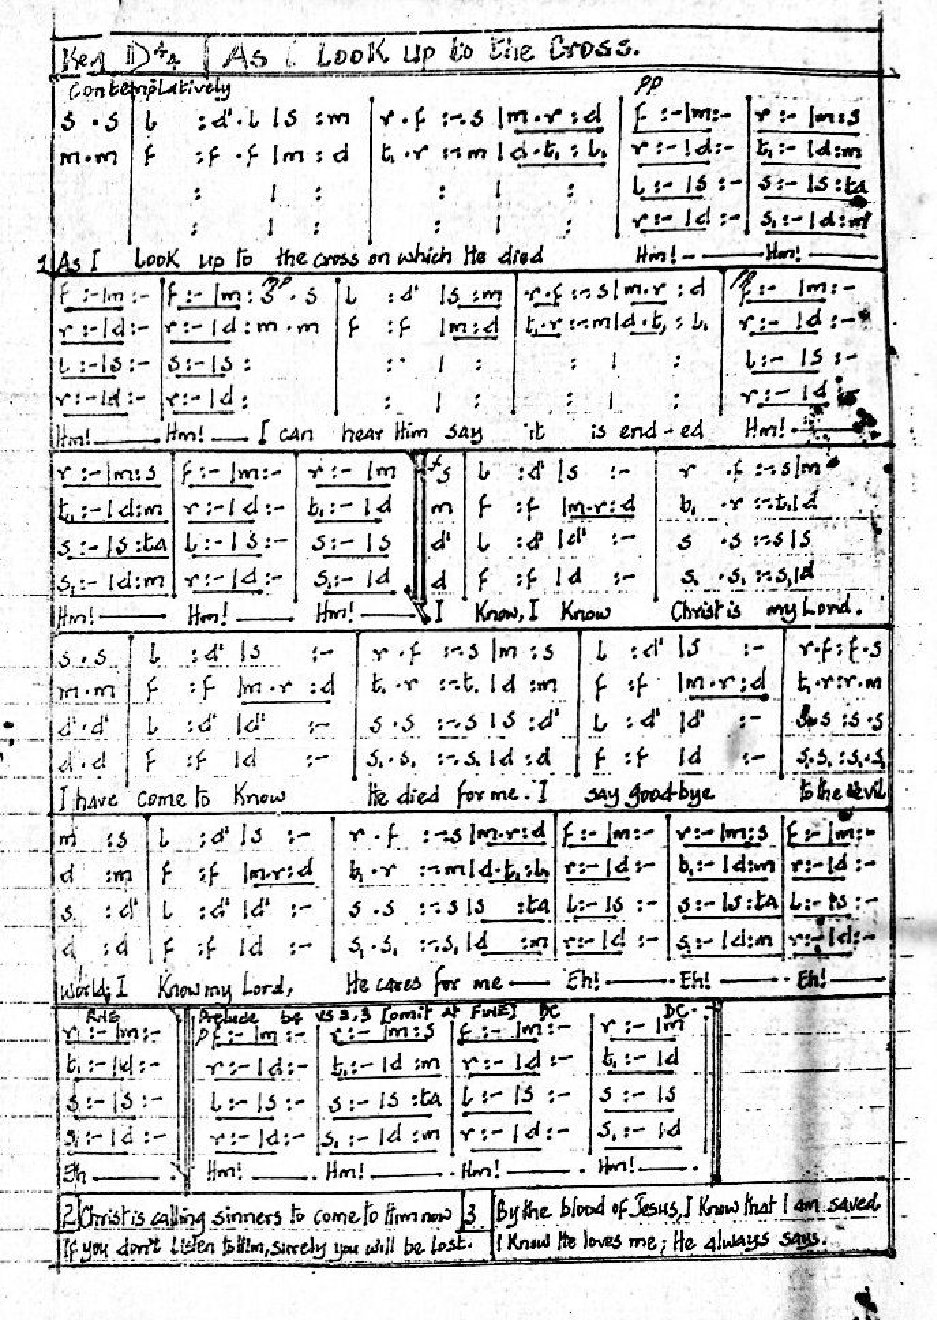 Key D 4/4 | As I Look up to the Cross.
Contemplatively pp
s . s | l : d' . l | s : m | r . f :-. s | m . r : d | f :- | m :- | r :- | m : s
m . m | f : f . f | m : d | t₁ . r :-. m | d . t₁ : l₁ | r :- | d :- | t₁ :- | d : m
: | : | : | : | l :- | s :- | s :- | s : ta
: | : | : | : | r :- | d :- | s₁ :- | d : m
1 As I Look up to the cross on which He died Hm! Hm!
f :- | m :- | f :- | m : s . s | l : d' | s : m | r . f :-. s | m . r : d | f :- | m :-
r :- | d :- | r :- | d : m . m | f : f | m : d | t₁ . r :-. m | d . t₁ : l₁ | r :- | d :-
l :- | s :- | s :- | s : | : | : | : | : | l :- | s :-
r :- | d :- | r :- | d : | : | : | : | : | r :- | d
Hm! Hm! I can hear Him say it is end-ed Hm!
r :- | m : s | f :- | m :- | r :- | m || s | l : d' | s :- | r . f :-. s | m
t₁ :- | d : m | r :- | d :- | t₁ :- | d || m | f : f | m . r : d | t₁ . r :-. t₁ | d
s :- | s : ta | l :- | s :- | s :- | s || d' | l : d' | d' :- | s . s :-. s | s
s₁ :- | d : m | r :- | d :- | s₁ :- | d || d | f : f | d :- | s₁ . s₁ :-. s₁ | d
Hm! Hm! Hm! I Know, I Know Christ is my Lord.
s . s | l : d' | s :- | r . f :-. s | m : s | l : d' | s :- | r . f : f . s
m . m | f : f | m . r : d | t₁ . r :-. t₁ | d : m | f : f | m . r : d | t₁ . r : r . m
d' . d' | l : d' | d' :- | s . s :-. s | s : d' | l : d' | d' :- | s . s : s . s
d . d | f : f | d :- | s₁ . s₁ :-. s₁ | d : d | f : f | d :- | s₁ . s₁ : s₁ . s₁
I have come to Know He died for me. I say good-bye to the devil
m : s | l : d' | s :- | r . f :-. s | m . r : d | f :- | m :- | r :- | m : s | f :- | m :-
d : m | f : f | m . r : d | t₁ . r :-. m | d . t₁ : l₁ | r :- | d :- | t₁ :- | d : m | r :- | d :-
s : d' | l : d' | d' :- | s . s :-. s | s : ta | l :- | s :- | s :- | s : ta | l :- | s :-
d : d | f : f | d :- | s₁ . s₁ :-. s₁ | d : m | r :- | d :- | s₁ :- | d : m | r :- | d :-
world; I Know my Lord, He cares for me Eh! Eh! Eh!
FINE Prelude b4 vs 2,3 [omit at FINE] DC DC
r :- | m :- || p f :- | m :- | r :- | m : s | f :- | m :- | r :- | m
t₁ :- | d :- || r :- | d :- | t₁ :- | d : m | r :- | d :- | t₁ :- | d
s :- | s :- || l :- | s :- | s :- | s : ta | l :- | s :- | s :- | s
s₁ :- | d :- || r :- | d :- | s₁ :- | d : m | r :- | d :- | s₁ :- | d
Eh Hm! Hm! Hm! Hm!
2 Christ is calling sinners to come to Him now
If you don't Listen to Him, surely you will be lost.
3 By the blood of Jesus, I Know that I am saved
I Know He loves me; He always says.